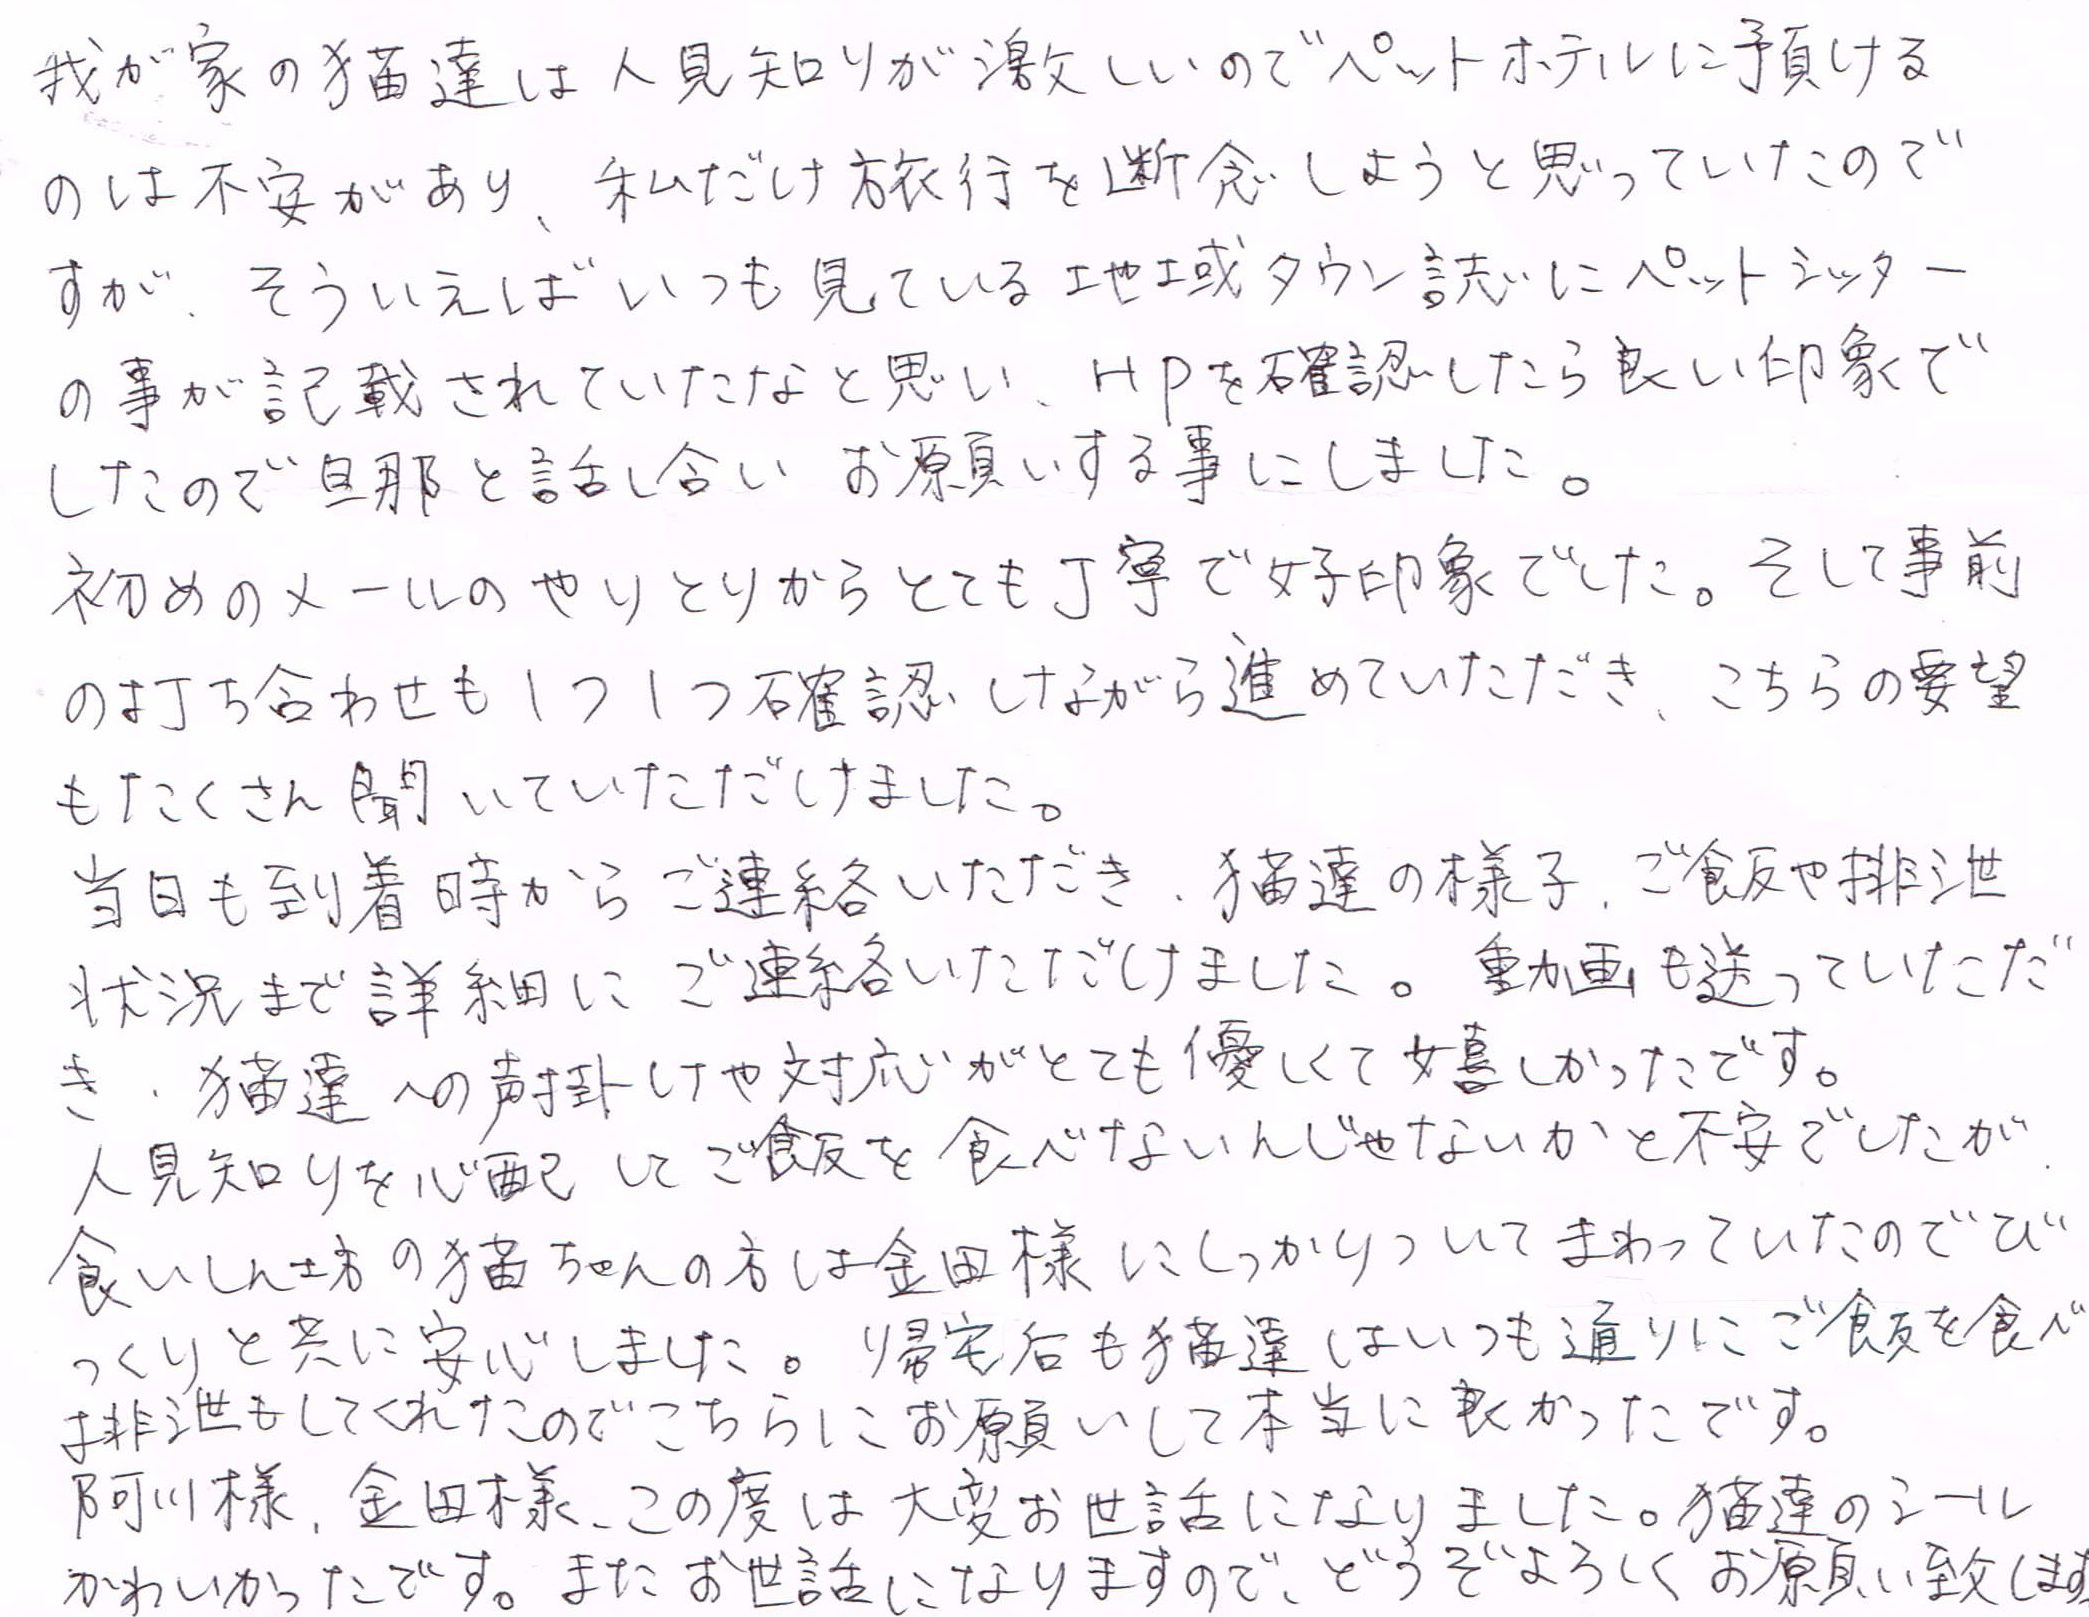 我が家の猫達は人見知りが激しいのでペットホテルに預ける
のは不安があり、私だけ旅行を断念しようと思っていたので
すが、そういえばいつも見ている地域タウン誌にペットシッター
の事が記載されていたなと思い、HPを確認したら良い印象で
したので旦那と話し合い お願いする事にしました。
初めのメールのやりとりからとても丁寧で好印象でした。そして事前
の打ち合わせも1つ1つ確認しながら進めていただき、こちらの要望
もたくさん聞いていただけました。
当日も到着時からご連絡いただき、猫達の様子、ご飯や排泄
状況まで詳細にご連絡いただけました。動画も送っていただ
き、猫達への声掛けや対応がとても優しくて嬉しかったです。
人見知りを心配してご飯を食べないんじゃないかと不安でしたが、
食いしん坊の猫ちゃんの方は金田様にしっかりついてまわっていたのでび
っくりと共に安心しました。帰宅后も猫達はいつも通りにご飯を食べ
排泄もしてくれたのでこちらにお願いして本当に良かったです。
阿川様、金田様、この度は大変お世話になりました。猫達のシール
かわいかったです。またお世話になりますので、どうぞよろしくお願い致します